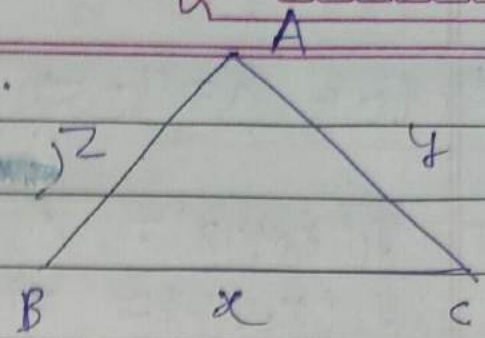 A
Z y
B x C